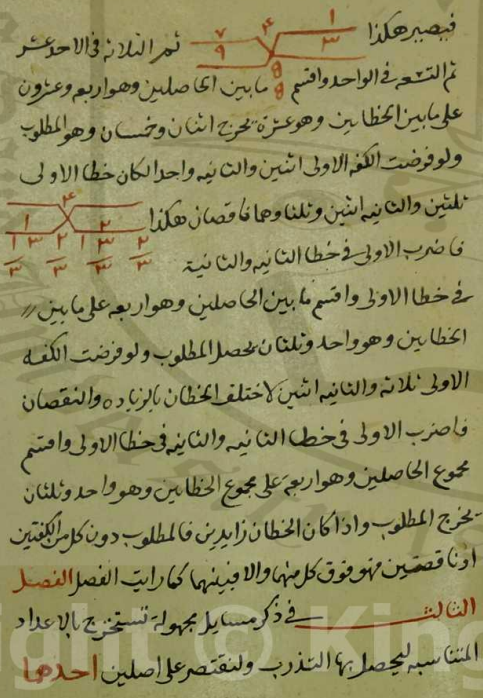 فيصير هكذا ١ ٣ ٤ ٧ ٩ ثم الثلاثة فى الاحد عشر
ثم التسعة فى الواحد واقسم ما بين الحاصلين وهو اربعه وعشرون
على ما بين الخطاين وهو عشرة يخرج اثنان وخمسان وهو المطلوب
ولو فرضت الكفه الاولى اثنين والثانيه واحد الكان خطا الاولى
ثلثين والثانيه اثنين وثلثا وهما ناقصان هكذا
فاضرب الاولى فى خطا الثانيه والثانية
فى خطا الاولى واقسم ما بين الحاصلين وهو اربعه على ما بين
الخطاين وهو واحد وثلثان يحصل المطلوب ولو فرضت الكفه
الاولى ثلاثه والثانيه اثنين لاختلف الخطان بالزياده والنقصان
فاضرب الاولى فى خطا الثانيه والثانيه فى خطا الاولى واقسم
مجموع الحاصلين وهو اربعه على مجموع الخطاين وهو واحد وثلثان
يخرج المطلوب واذا كان الخطان زايدين فالمطلوب دون كل من الكفتين
او ناقصين فهو فوق كل منهما والا فبينهما كما رايت الفصل الفصل
الثالث فى ذكر مسايل مجهولة تستخرج بالاعداد
المتناسبه ليحصل بها التدرب ولنقتصر على اصلين احدها